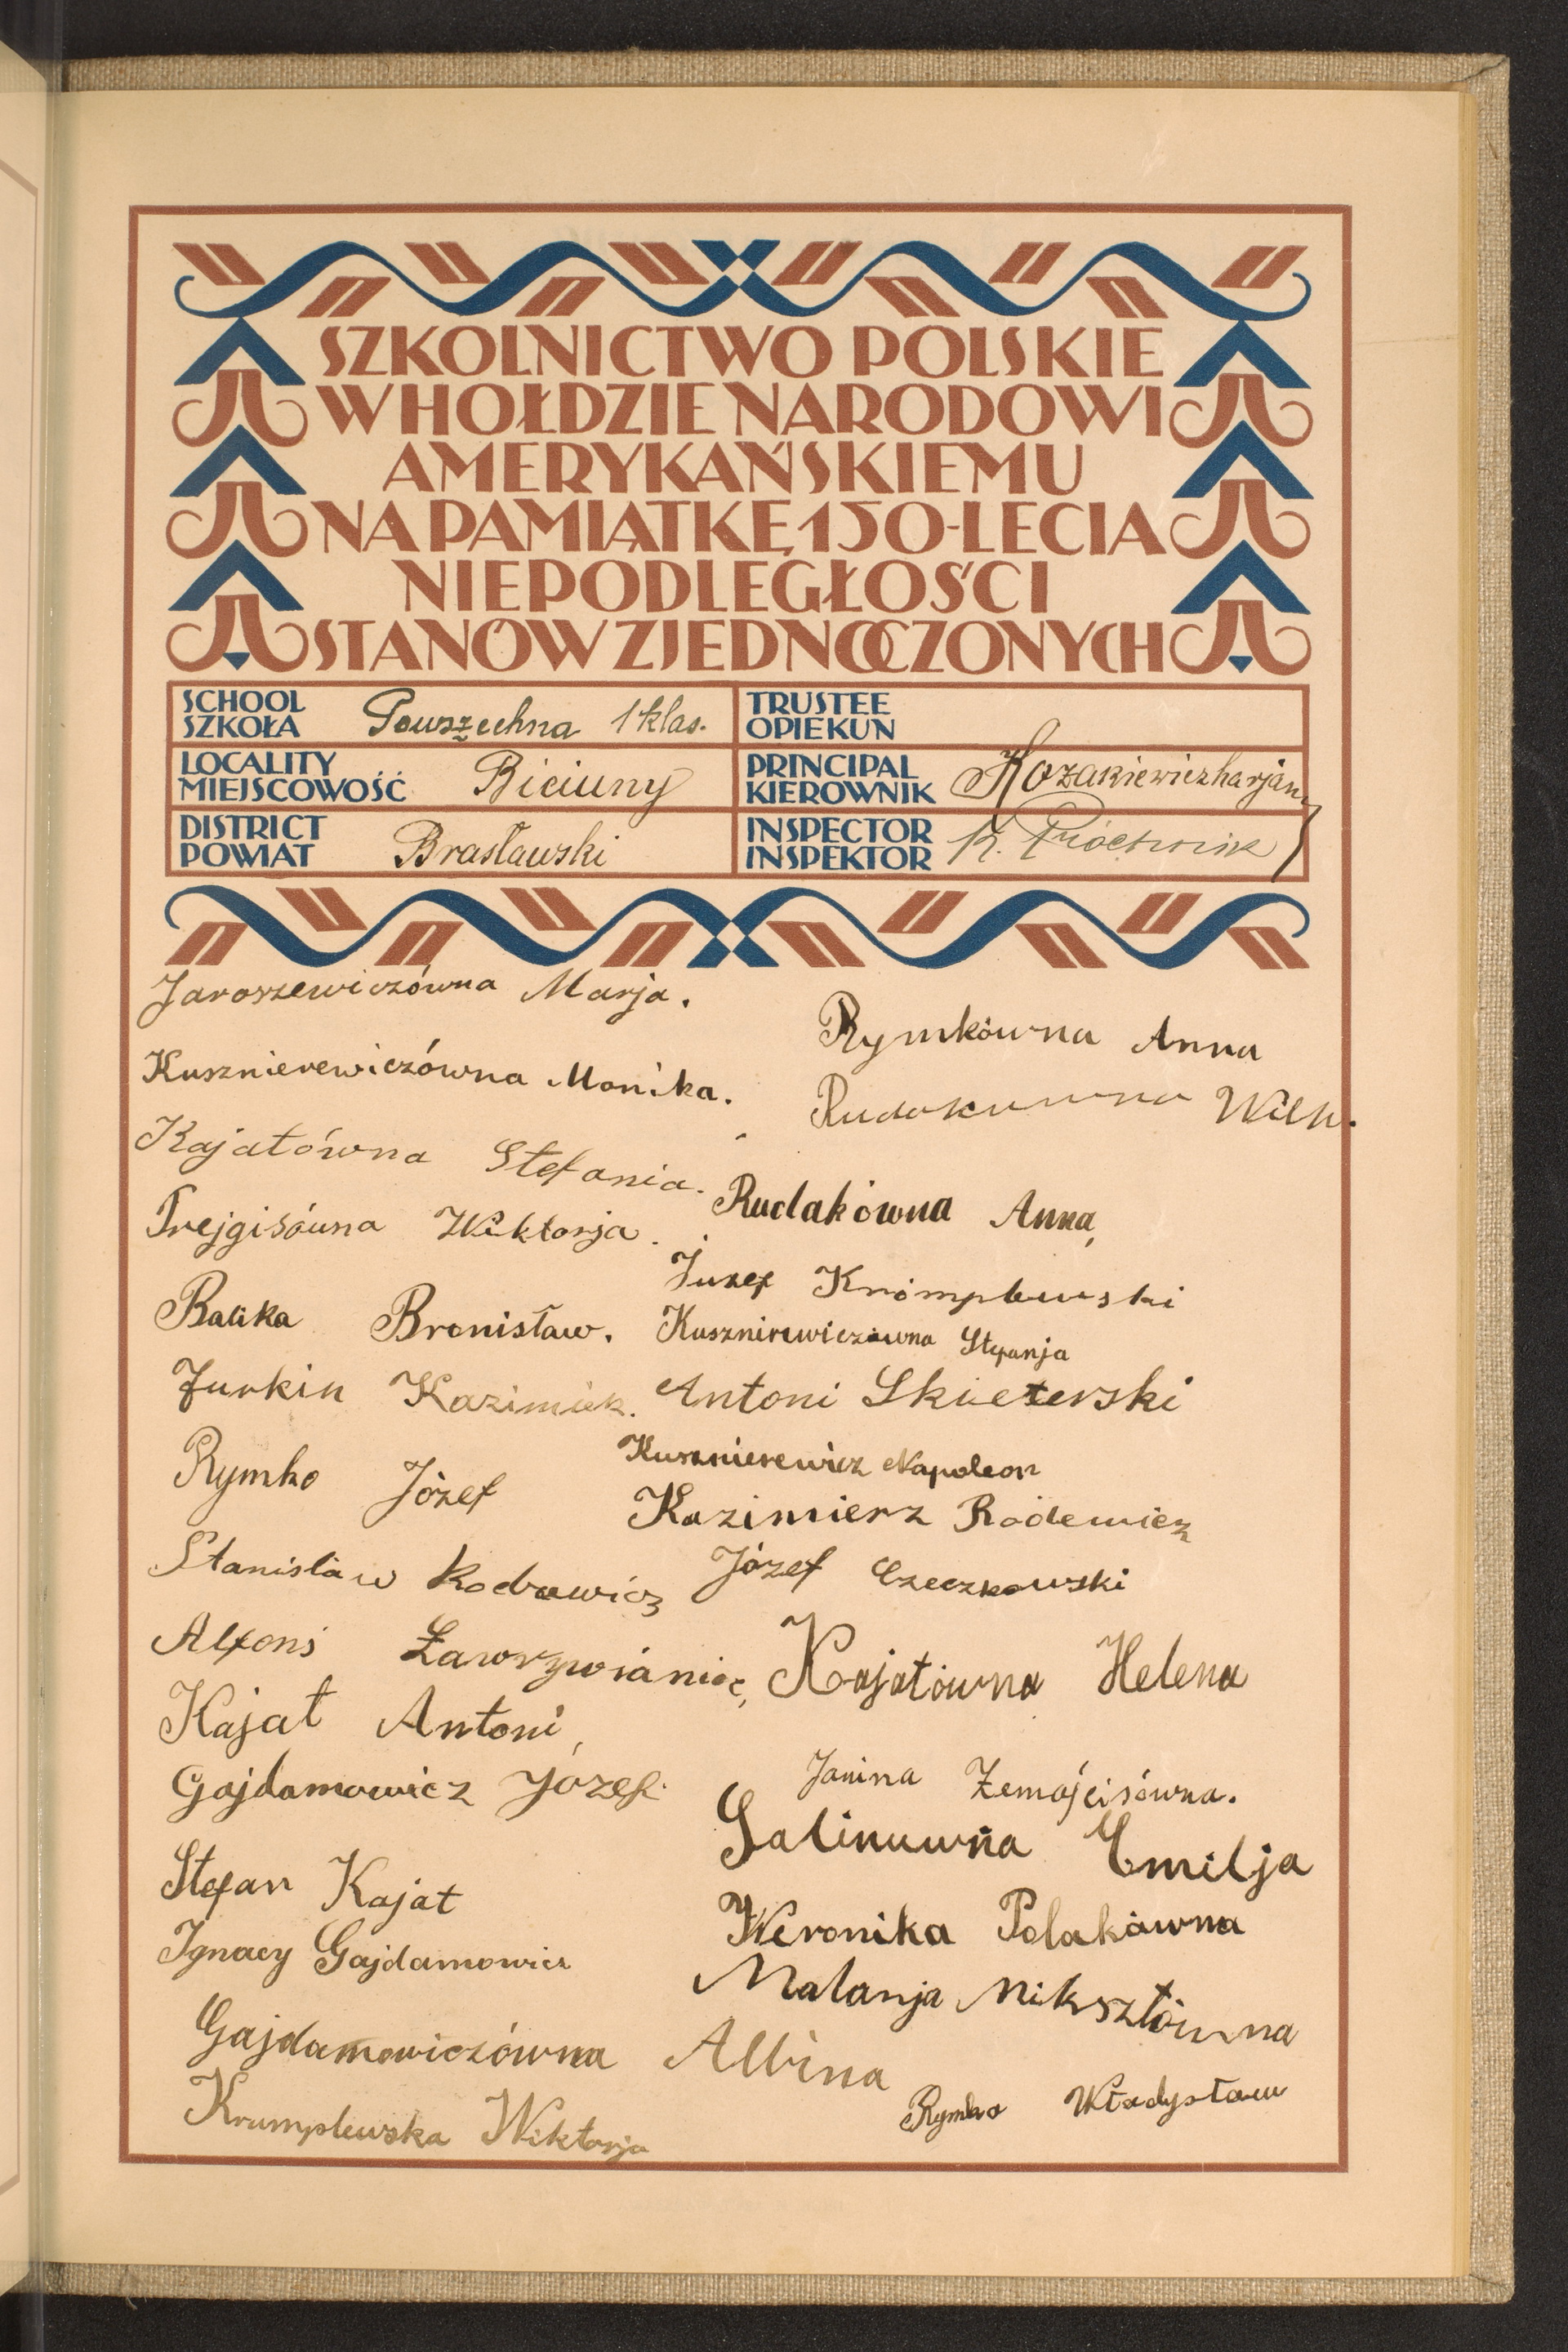 SZKOLNICTWO POLSKIE
W HOŁDZIE NARODOWI
AMERYKAŃSKIEMU
NA PAMIĄTKĘ 150-LECIA
NIEPODLEGŁOŚCI
STANÓW ZJEDNOCZONYCH
SCHOOL
SZKOŁA
Powszechna 1 klas.
TRUSTEE
OPIEKUN
LOCALITY
MIEJSCOWOŚĆ
Biciuny
PRINCIPAL
KIEROWNIK
Kozakiewicz
DISTRICT
POWIAT
Brasławski
INSPECTOR
INSPEKTOR
K. Próchnik
Jaroszewiczówna Marja.
Kusznierewiczówna Monika.
Kajatówna Stefania.
Trejgisówna Wiktorja.
Bronisław.
Jurkin Kazimierz.
Rymko Józef
Stanisław Rodzewicz
Alfons
Kajat Antoni,
Gajdamowicz Józef.
Stefan Kajat
Ignacy Gajdamowicz
Gajdamowiczówna Albina
Krumplewska Wiktorja
Rymkówna Anna
Rudakuwna
Rudakówna Anna,
Juzef Krómplewski
Kusznirewiczówna Stefanja
Antoni Skieterski
Kusznierewicz Napoleon
Kazimierz Rodewicz
Józef Czeczkowski
Kajatówna Helena
Janina Żemojcisówna.
Galinuwna Emilja
Weronika Polakówna
Malanja Miksztówna
Rymko Władysław